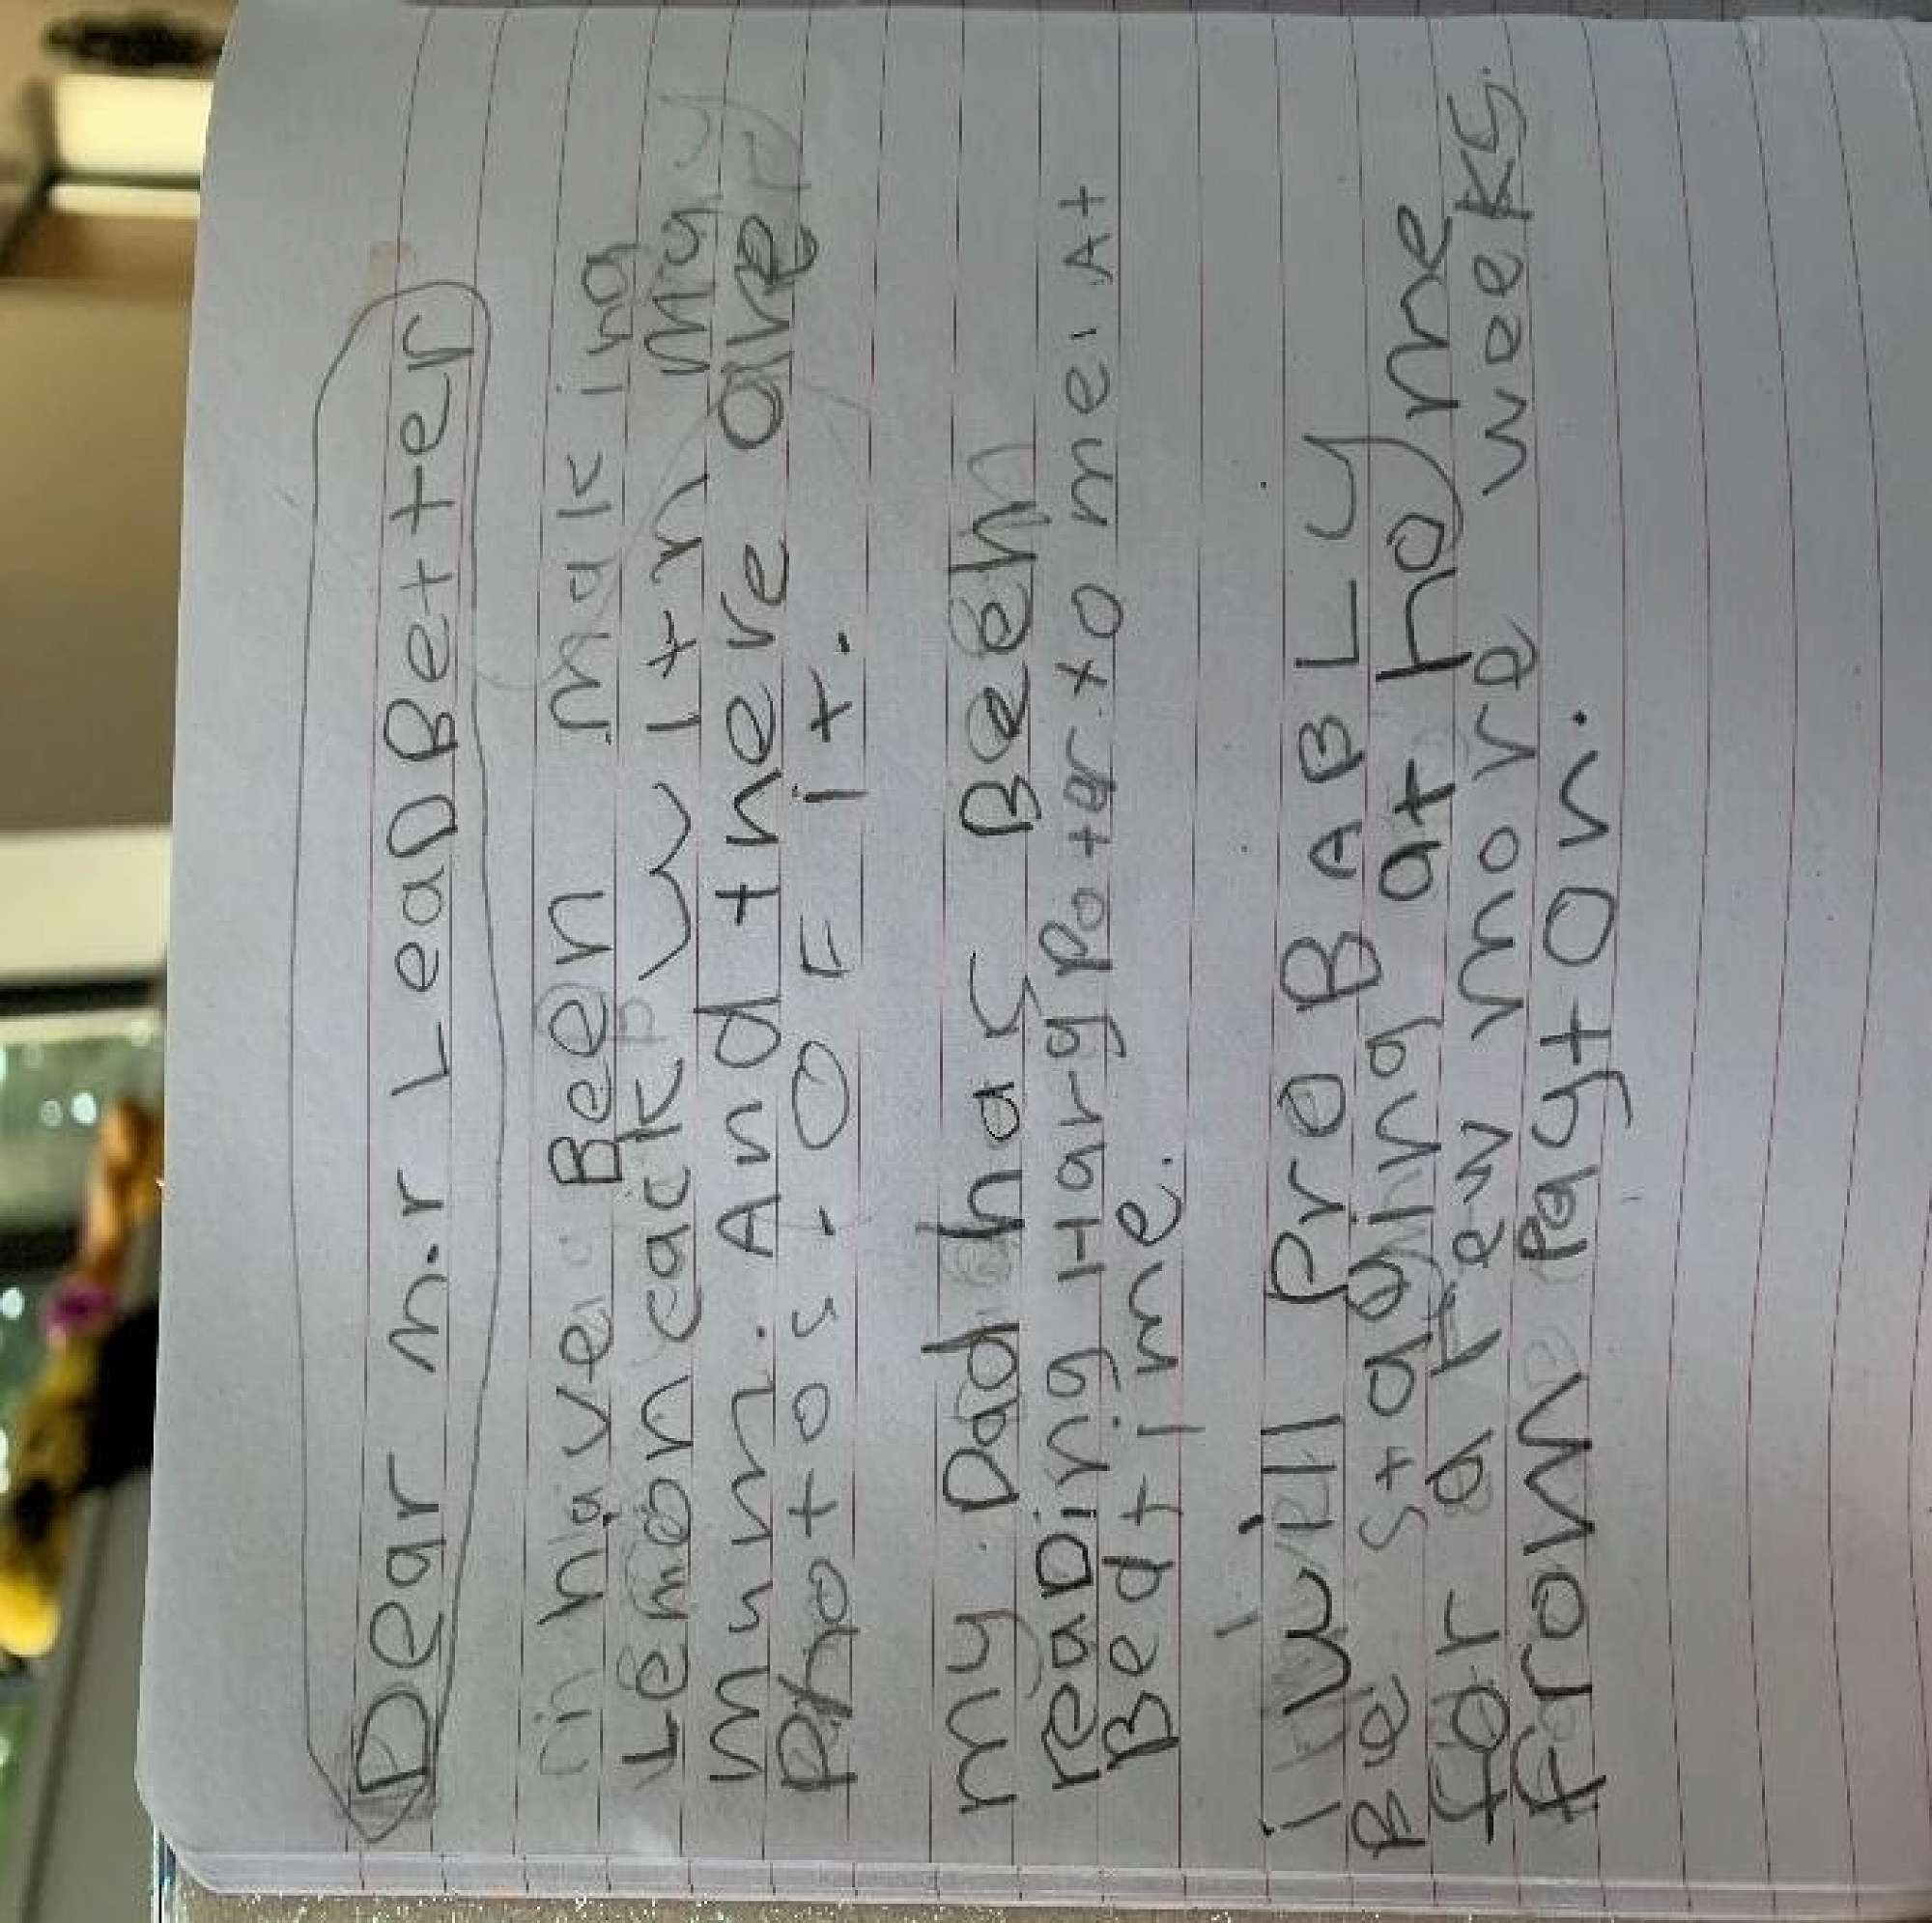 Dear m.r LeaDBetter
i have Been making
Lemon cack with my
mum. And there are
Photos - OF it.
my Dad has Been
reaDing Hary Poter to me. At
Bedtime.
i will ProBABLY
Be staying at home
for a few more weeks.
from Payton.